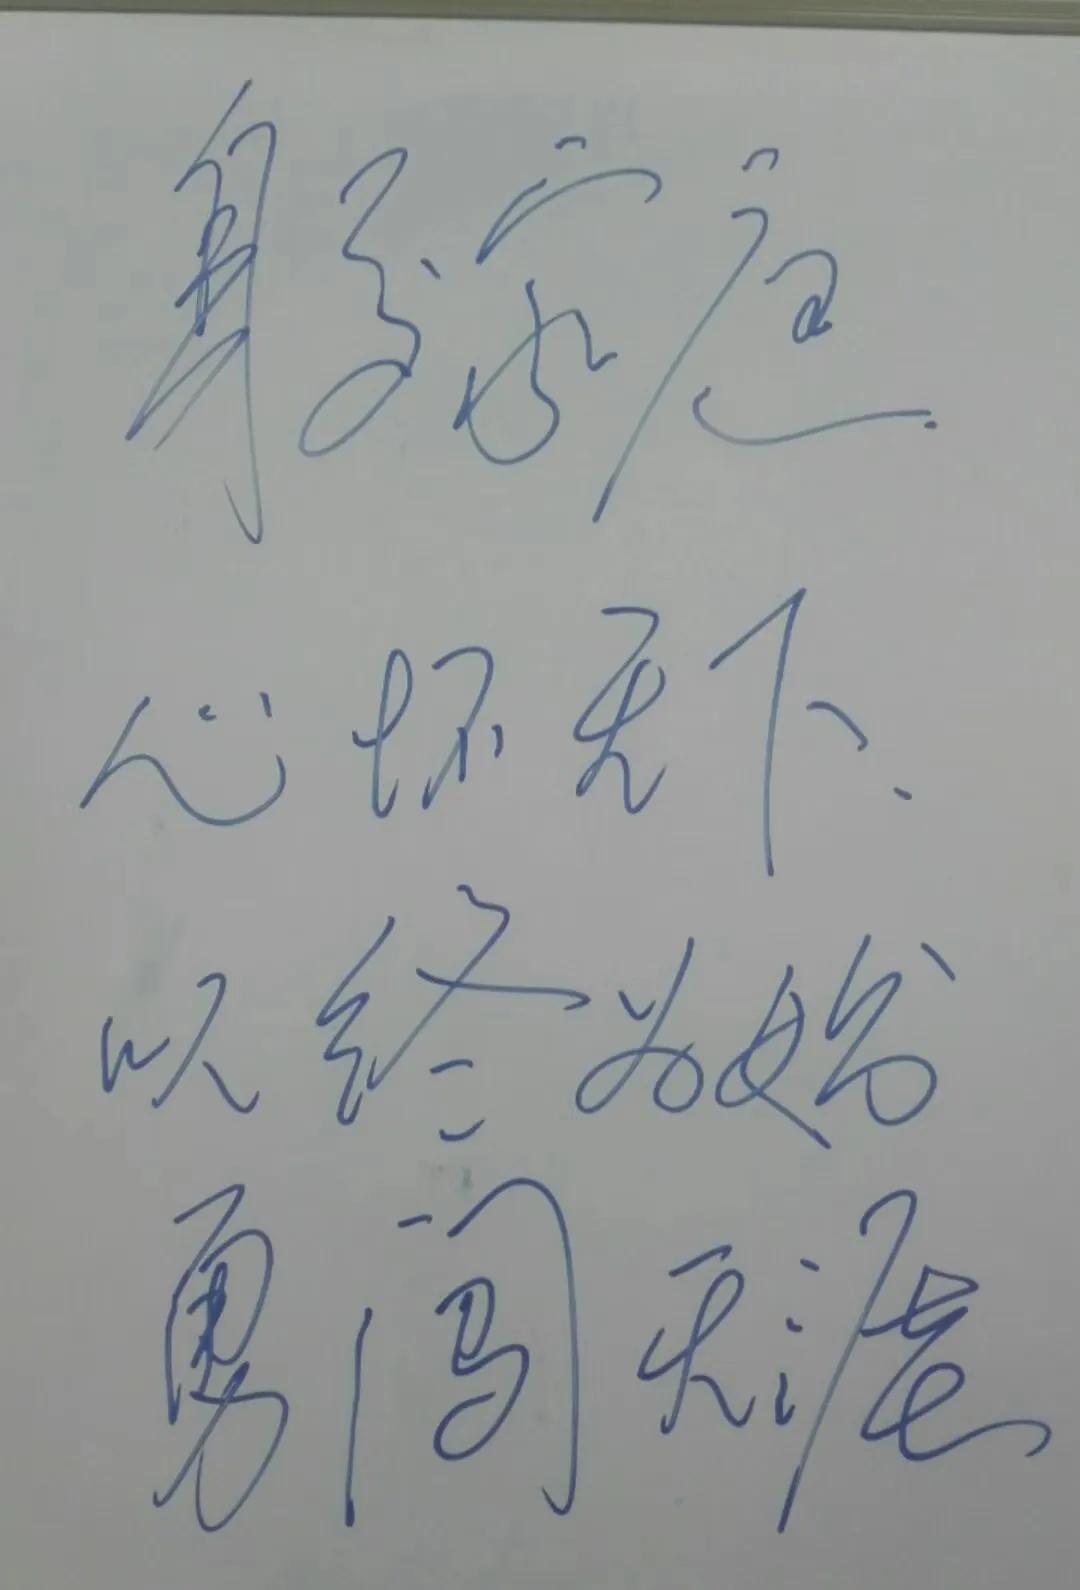 身为家庭
心怀天下
以终为始
勇闯天涯